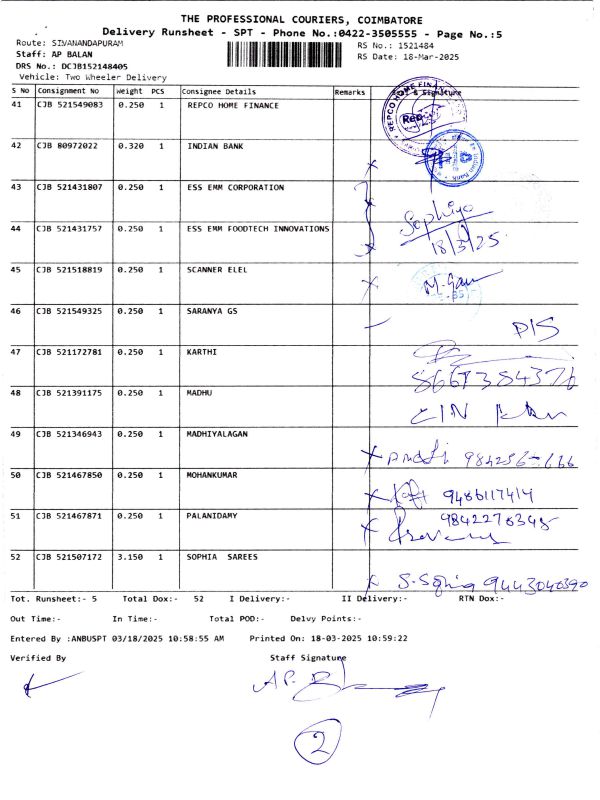 THE PROFESSIONAL COURIERS, COIMBATORE
Delivery Runsheet - SPT - Phone No.:0422-3505555 - Page No.:5
Route: SIVANANDAPURAM RS No.: 1521484
Staff: AP BALAN RS Date: 18-Mar-2025
DRS No.: DCJB152148405
Vehicle: Two Wheeler Delivery
S No Consignment No Weight PCS Consignee Details Remarks & Signature
41 CJB 521549083 0.250 1 REPCO HOME FINANCE
REPCO HOME FIN
42 CJB 80972022 0.320 1 INDIAN BANK
43 CJB 521431807 0.250 1 ESS EMM CORPORATION
Sophiya
44 CJB 521431757 0.250 1 ESS EMM FOODTECH INNOVATIONS
18/3/25
45 CJB 521518819 0.250 1 SCANNER ELEL
46 CJB 521549325 0.250 1 SARANYA GS
D/S
47 CJB 521172781 0.250 1 KARTHI
8667384376
48 CJB 521391175 0.250 1 MADHU
49 CJB 521346943 0.250 1 MADHIYALAGAN
50 CJB 521467850 0.250 1 MOHANKUMAR
9486117414
51 CJB 521467871 0.250 1 PALANIDAMY
9842276345
52 CJB 521507172 3.150 1 SOPHIA SAREES
9443040390
Tot. Runsheet:- 5 Total Dox:- 52 I Delivery:- II Delivery:- RTN Dox:-
Out Time:- In Time:- Total POD:- Delvy Points:-
Entered By :ANBUSPT 03/18/2025 10:58:55 AM Printed On: 18-03-2025 10:59:22
Verified By Staff Signature
2